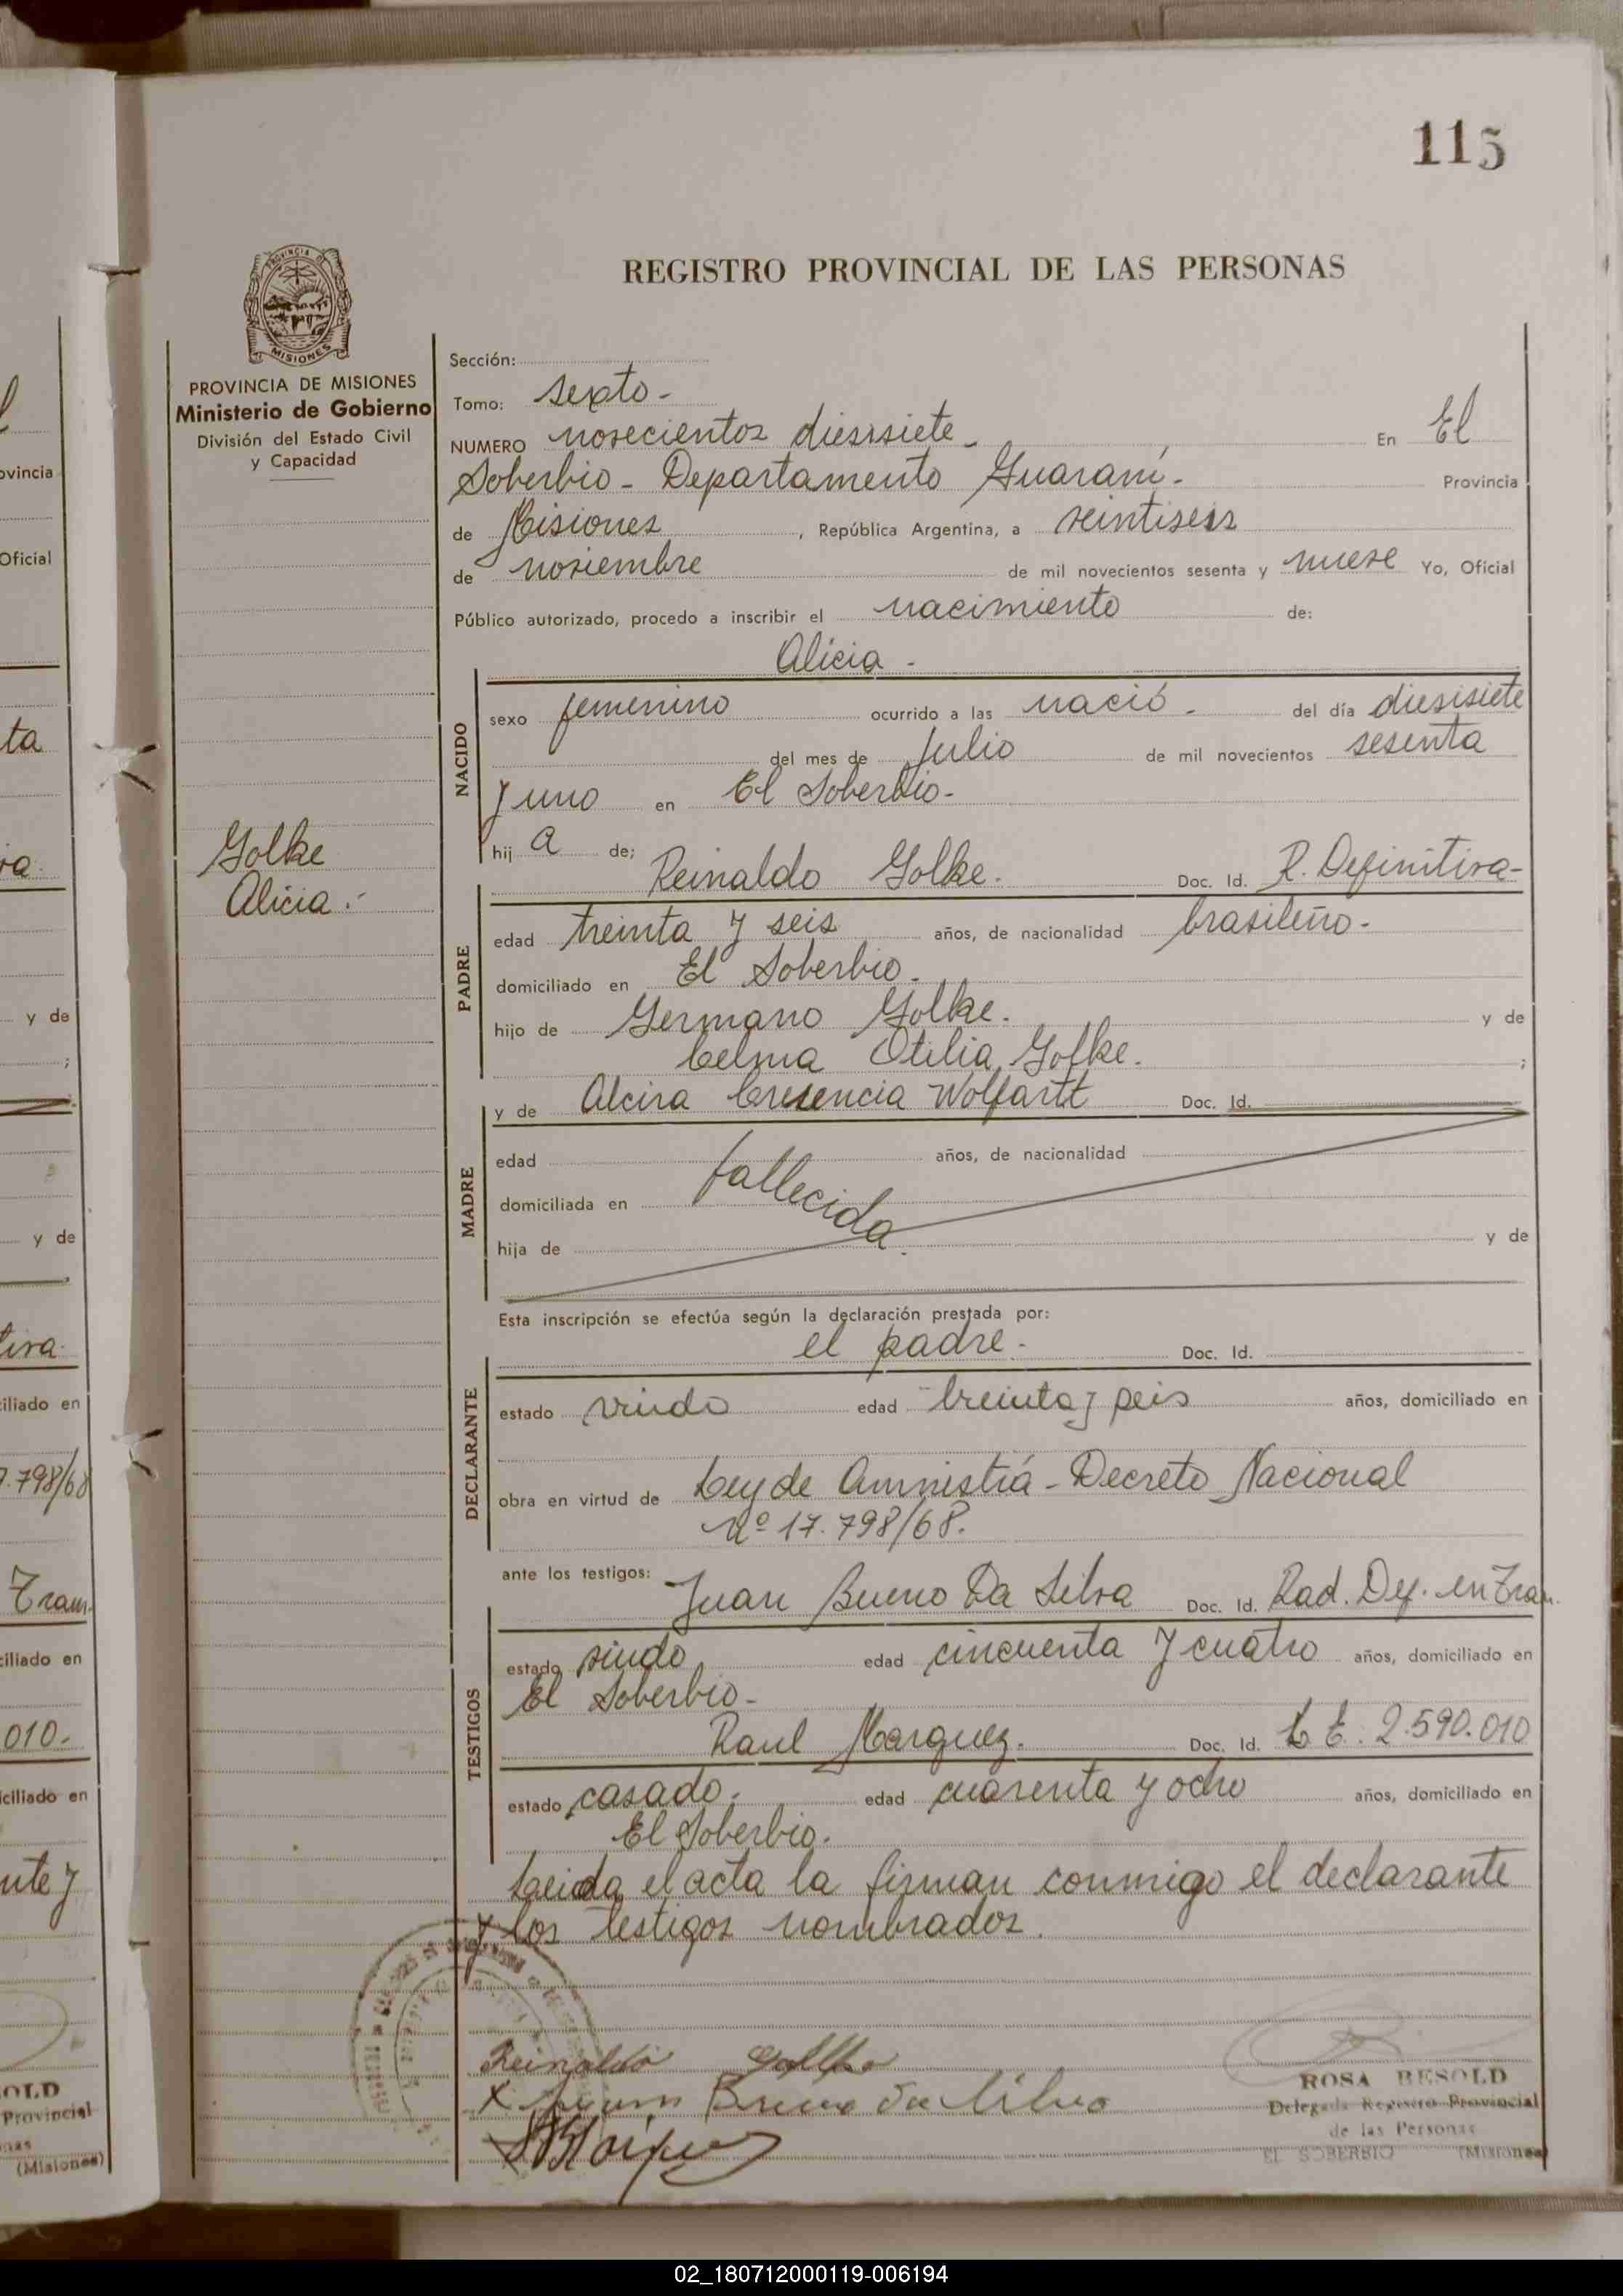 115
REGISTRO PROVINCIAL DE LAS PERSONAS
PROVINCIA DE MISIONES
MISIONES
PROVINCIA DE MISIONES
Ministerio de Gobierno
División del Estado Civil
y Capacidad
Golke
Alicia.-
Sección:
Tomo: sexto-
NUMERO novecientos diesisiete- En El
Soberbio- Departamento Guaraní- Provincia
de Misiones, República Argentina, a veintiseis
de noviembre de mil novecientos sesenta y nueve Yo, Oficial
Público autorizado, procedo a inscribir el nacimiento de:
Alicia-
NACIDO
sexo femenino ocurrido a las nació- del día diesisiete
del mes de julio de mil novecientos sesenta
y uno en El Soberbio-
hij a de;
PADRE
Reinaldo Golke. Doc. Id. R. Definitiva-
edad treinta y seis años, de nacionalidad brasileño-
domiciliado en El Soberbio.
hijo de Germano Golke. y de
Celma Otilia Golke. ;
MADRE
y de Alcira Cresencia Wolfartt Doc. Id.
edad años, de nacionalidad
domiciliada en fallecida.
hija de y de
Esta inscripción se efectúa según la declaración prestada por:
DECLARANTE
el padre- Doc. Id.
estado viudo edad treinta y seis años, domiciliado en
obra en virtud de Ley de Amnistiá - Decreto Nacional
Nº 17.798/68.
ante los testigos:
TESTIGOS
Juan Bueno Da Silva Doc. Id. Rad. Def. en Tram.
estado viudo edad cincuenta y cuatro años, domiciliado en
El Soberbio-
Raul Marquez. Doc. Id. L E. 2.590.010
estado casado. edad cuarenta y ocho años, domiciliado en
El Soberbio.
Leida el acta la firman conmigo el declarante
y los testigos nombrados.
Reinaldo Golke
X Juan Bueno Da Silva
ROSA BESOLD
Delegada Registro Provincial
de las Personas
EL SOBERBIO (Misiones)
02_180712000119-006194